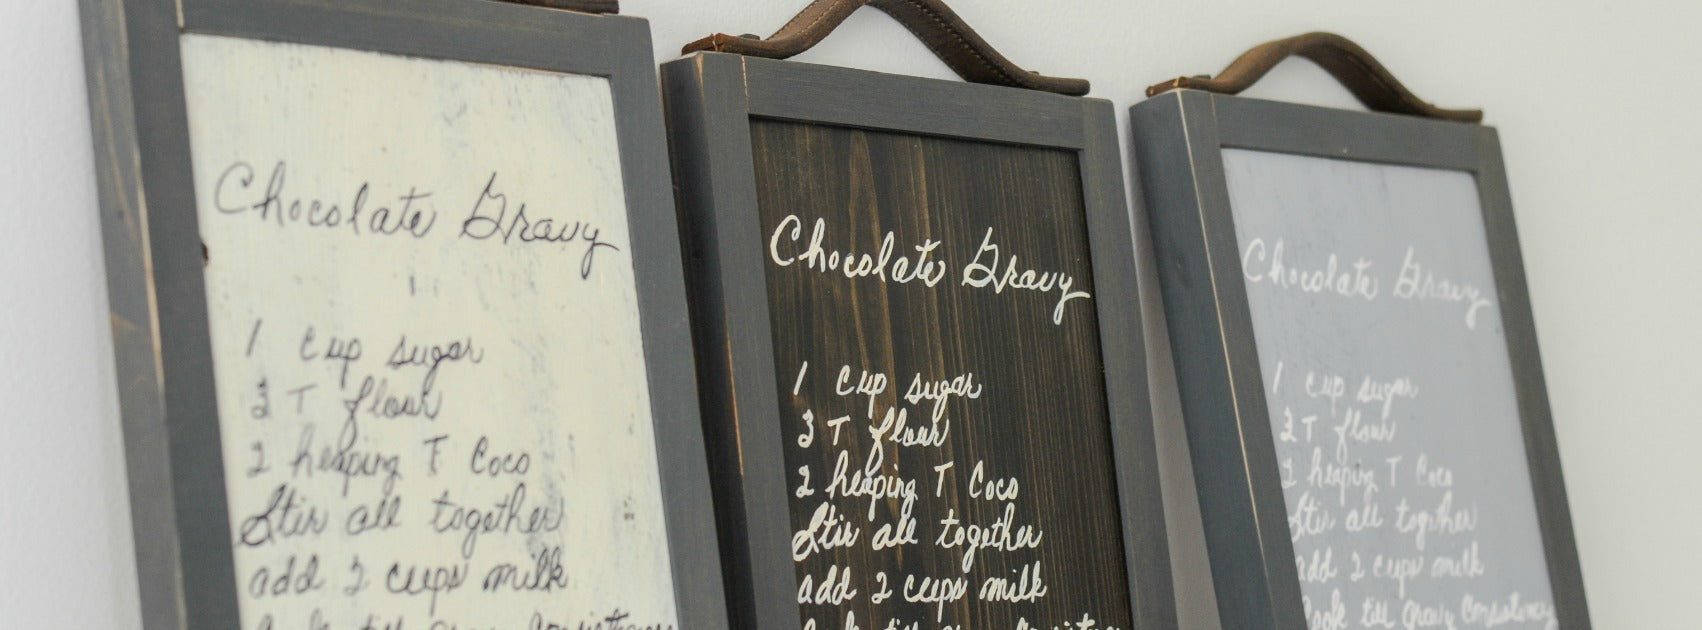 Chocolate Gravy
1 cup sugar
3 T flour
2 heaping T Coco
Stir all together
add 2 cups milk
Cook till gravy consistency
Chocolate Gravy
1 cup sugar
3 T flour
2 heaping T Coco
Stir all together
add 2 cups milk
Cook till gravy consistency
Chocolate Gravy
1 cup sugar
3 T flour
2 heaping T Coco
Stir all together
add 2 cups milk
Cook till gravy consistency